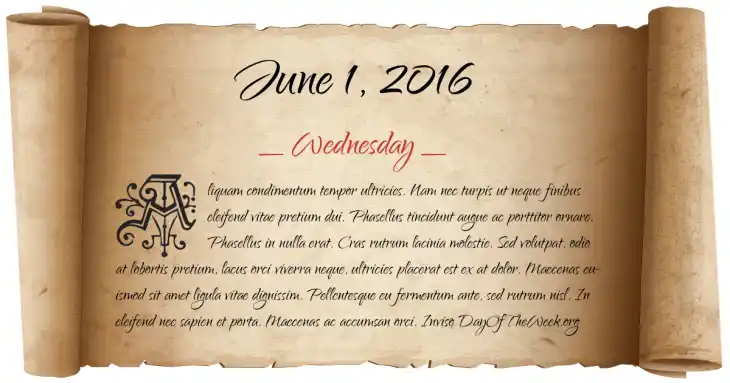 June 1, 2016
_ Wednesday _
Aliquam condimentum tempor ultricies. Nam nec turpis ut neque finibus
eleifend vitae pretium dui. Phasellus tincidunt augue ac porttitor ornare.
Phasellus in nulla erat. Cras rutrum lacinia molestie. Sed volutpat, odio
at lobortis pretium, lacus orci viverra neque, ultricies placerat est ex at dolor. Maecenas eu-
ismod sit amet ligula vitae dignissim. Pellentesque eu fermentum ante, sed rutrum nisl. In
eleifend nec sapien et porta. Maecenas ac accumsan orci. Invise DayOfTheWeek.org